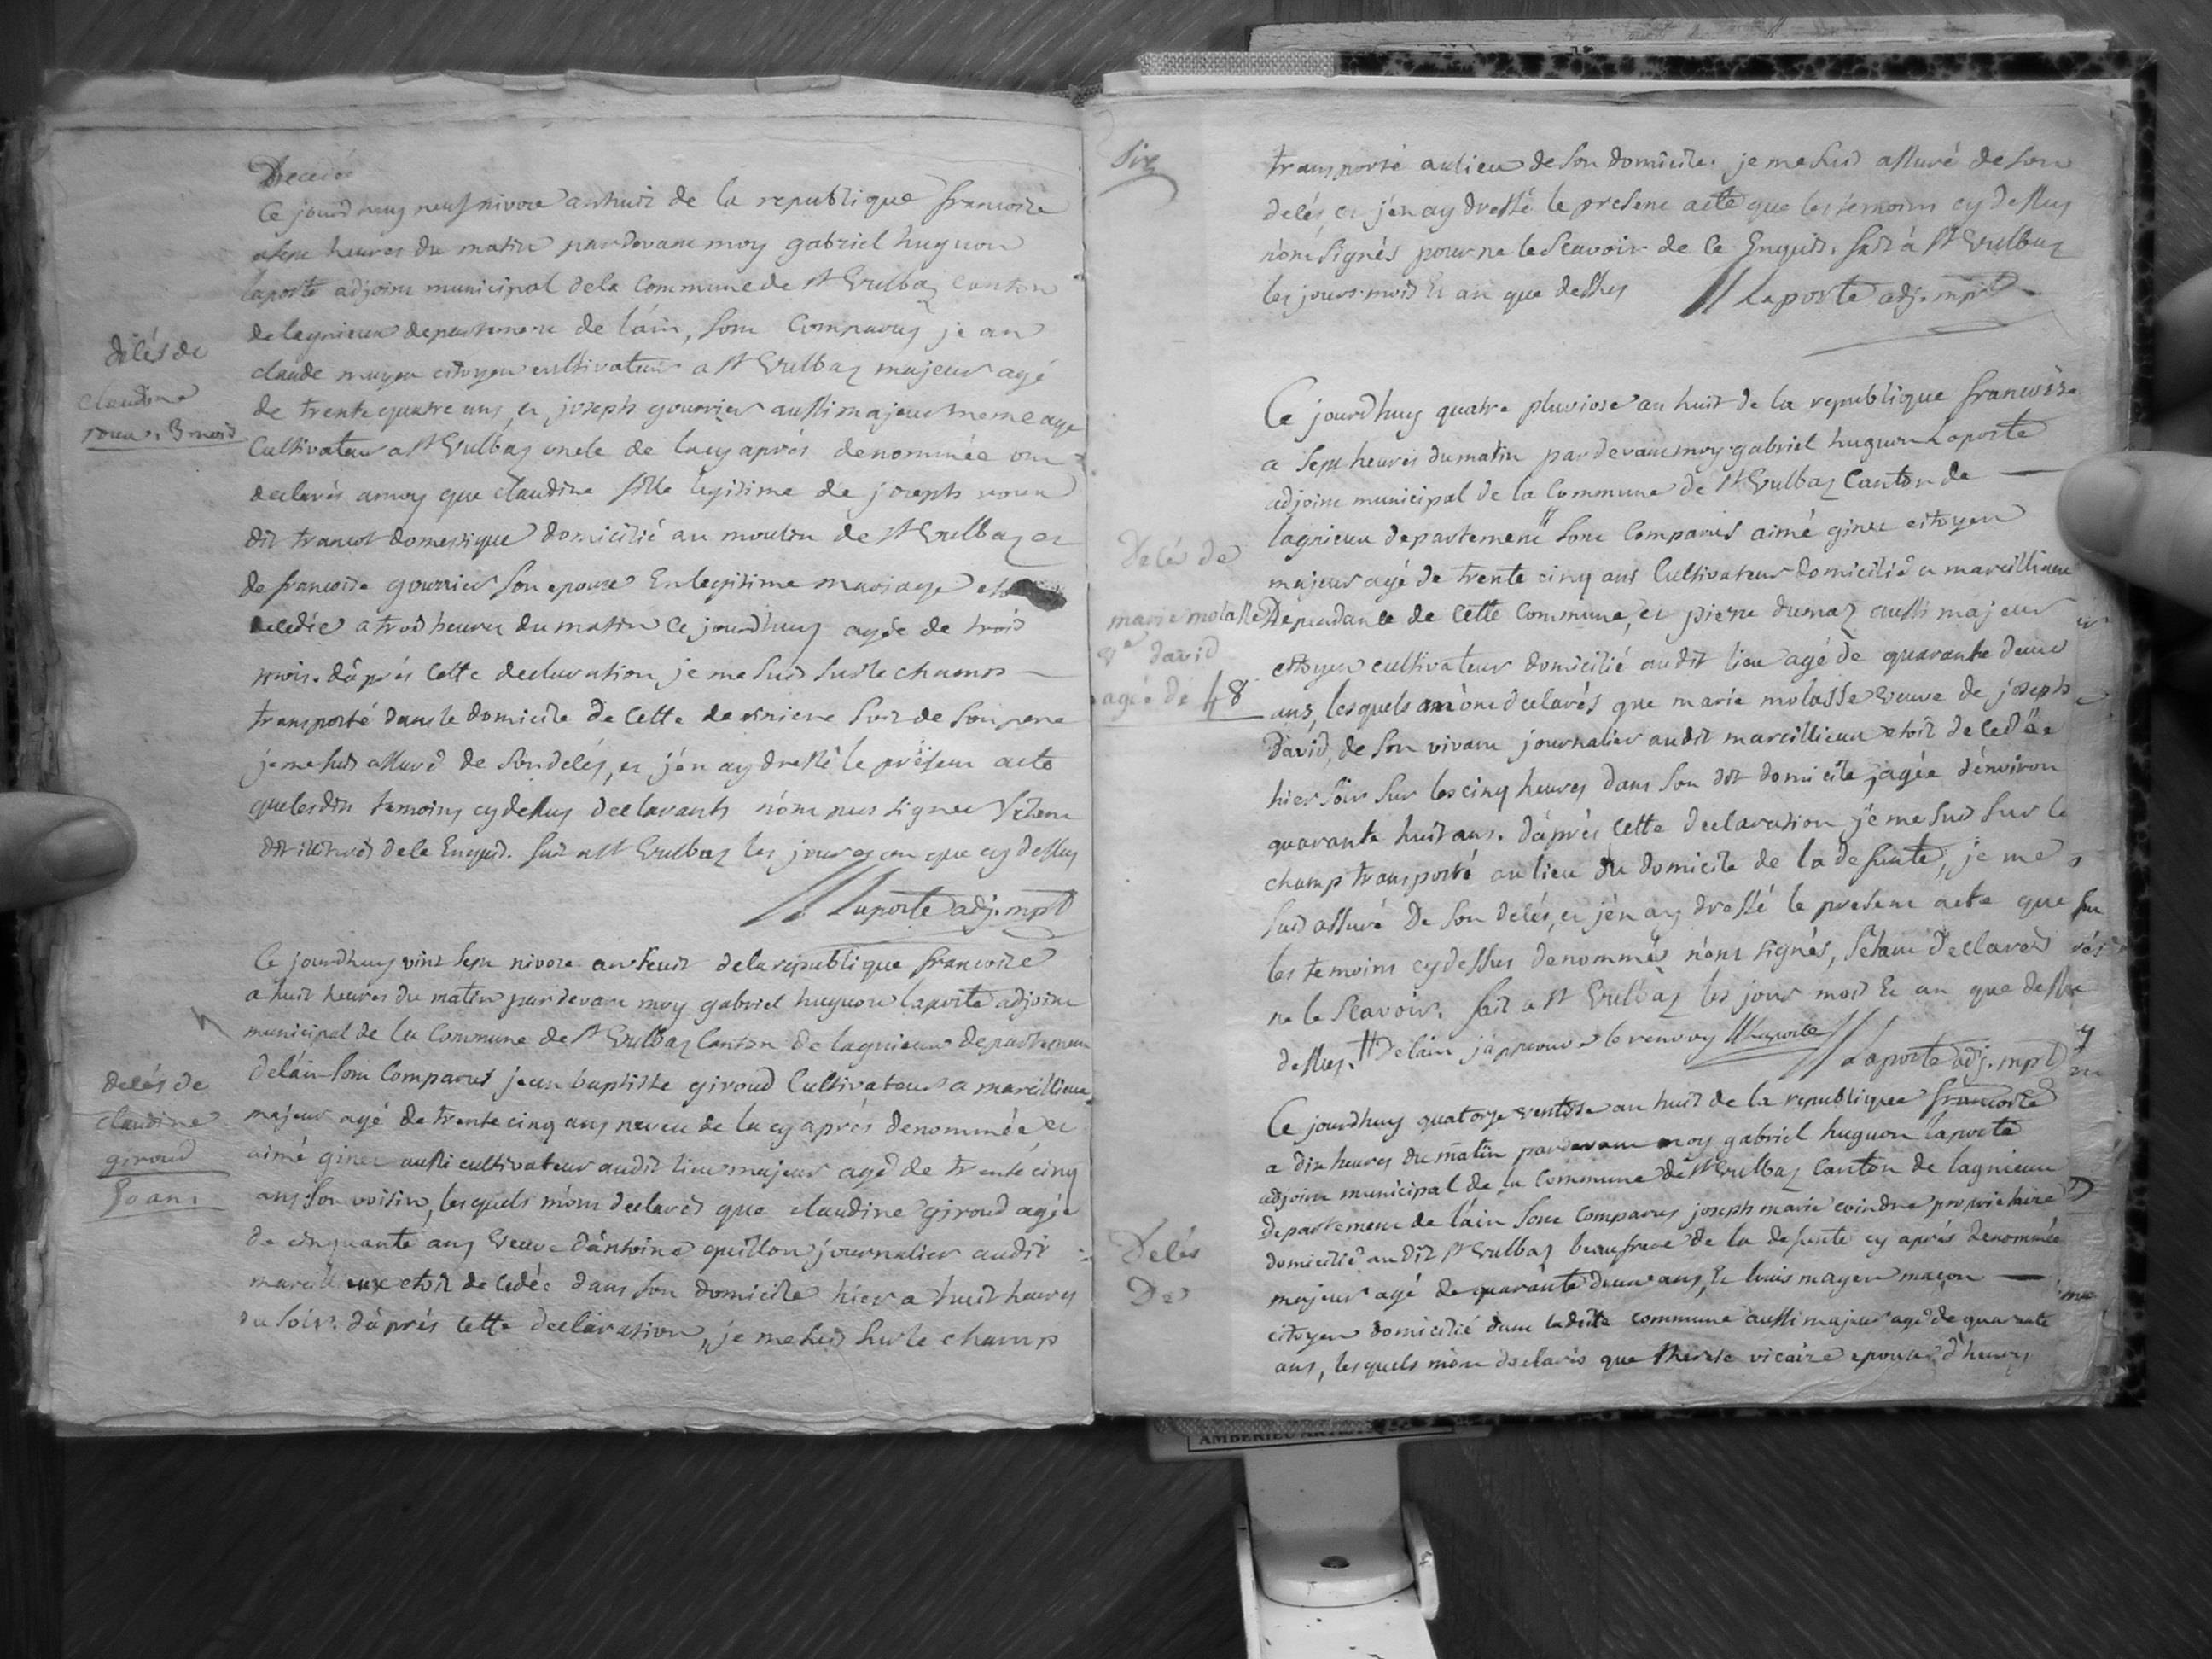 Decedée
Ce jourdhuy neuf nivose an huit de la republique francoise
a sept heures du matin pardevant moy gabriel huguon
laporte adjoint municipal de la Commune de St Vulbaz Canton
de lagnieux departement de láin, sont Comparus jean
claude mayen citoyen cultivateur a St Vulbaz majeur agé
de trente quatre ans, et joseph gourrier aussi majeur meme age
Cultivateur a St Vulbaz oncle de lacy aprés denommée ont
declarés amoy que claudine fille legitime de joseph roux
dit domestique domicilié au moulin de St Vulbaz et
de francoise gourrier son epouse En legitime mariage etoit
decedée a trois heures du matin Ce jourdhuy agée de trois
mois. dáprés Cette declaration, je me suis sur le champs
transporté dans le domicile de Cette derniere soit de son pere
je me suis assuré de son delés, et j'en ay dressé le présent acte
que lesdits temoins cy dessus declarants n'ont pas signer
de le Enquis. fait a St Vulbaz les jour et an que cy dessus
Laporte adj. mpl
delés de
claudine
roux. 3 mois
Ce jourdhuy vint sept nivose an huit de la republique francoise
a huit heures du matin pardevant moy gabriel huguon laporte adjoint
municipal de la Commune de St Vulbaz Canton de lagnieux departement
de láin sont Comparus jean baptiste giroud Cultivateur a marcillieux
majeur agé de trente cinq ans neveu de la cy aprés denommée, et
aimé ginet aussi cultivateur audit lieu majeur agé de trente cinq
ans son voisin, lesquels m'ont declarés que claudine giroud agée
de cinquante ans veuve dántoine quillon journalier audit
marcillieux etoit decedée dans son domicile hier a huit heures
du soir. dáprés Cette declaration, je me suis sur le champ
delés de
claudine
giroud
50 ans
Six
transporté au lieu de son domicile. je me suis assuré de son
delés et j'en ay dressé le present acte que les temoins cy dessus
n'ont signés pour ne le Scavoir de Ce Enquis. fait à St Vulbaz
les jours mois Et an que dessus Laporte adj. mpl
Ce jourdhuy quatre pluviose an huit de la republique francoise
a sept heures du matin pardevant moy gabriel huguon Laporte
adjoint municipal de la Commune de St Vulbaz Canton de
lagnieux departement # sont Comparus aimé ginet citoyen
majeur agé de trente cinq ans Cultivateur domicilié a marcillieux
Dependance de Cette Commune, et pierre dumaz aussi majeur
citoyen cultivateur domicilié audit lieu agé de quarante deux
ans, lesquels m'ont declarés que marie molasse veuve de joseph
David, de son vivant journalier audit marcillieux etoit decedée
hier soir sur les cinq heures dans son dit domicile, agée d'environ
quarante huit ans. dáprés Cette declaration je me suis sur le
champ transporté au lieu du domicile de la defunte, je me
suis assuré De son delés, et j'en ay dressé le present acte que
les temoins cy dessus denommés n'ont signés, s'etant declarés
ne le Scavoir. fait a St Vulbaz les jour mois Et an que dessus
dessus. # De láin j'approuve le renvoy Laporte Laporte adj. mpl
Delés de
marie molasse
Ve David
agée de 48
Ce jourdhuy quatorze ventose an huit de la republique francoise
a dix heures du matin pardevant moy gabriel huguon laporte
adjoint municipal de la Commune de St Vulbaz Canton de lagnieux
departement de láin sont Comparus joseph marie coindre proprietaire
domicilié audit St Vulbaz beaufrere de la defunte cy aprés denommée
majeur agé de quarante deux ans, Et louis mayen maçon
citoyen domicilié dans ladite commune aussi majeur agé de quarante
ans, lesquels m'ont declarés que therese vicaire epouse d'henry
Delés
De
AMBERIEU